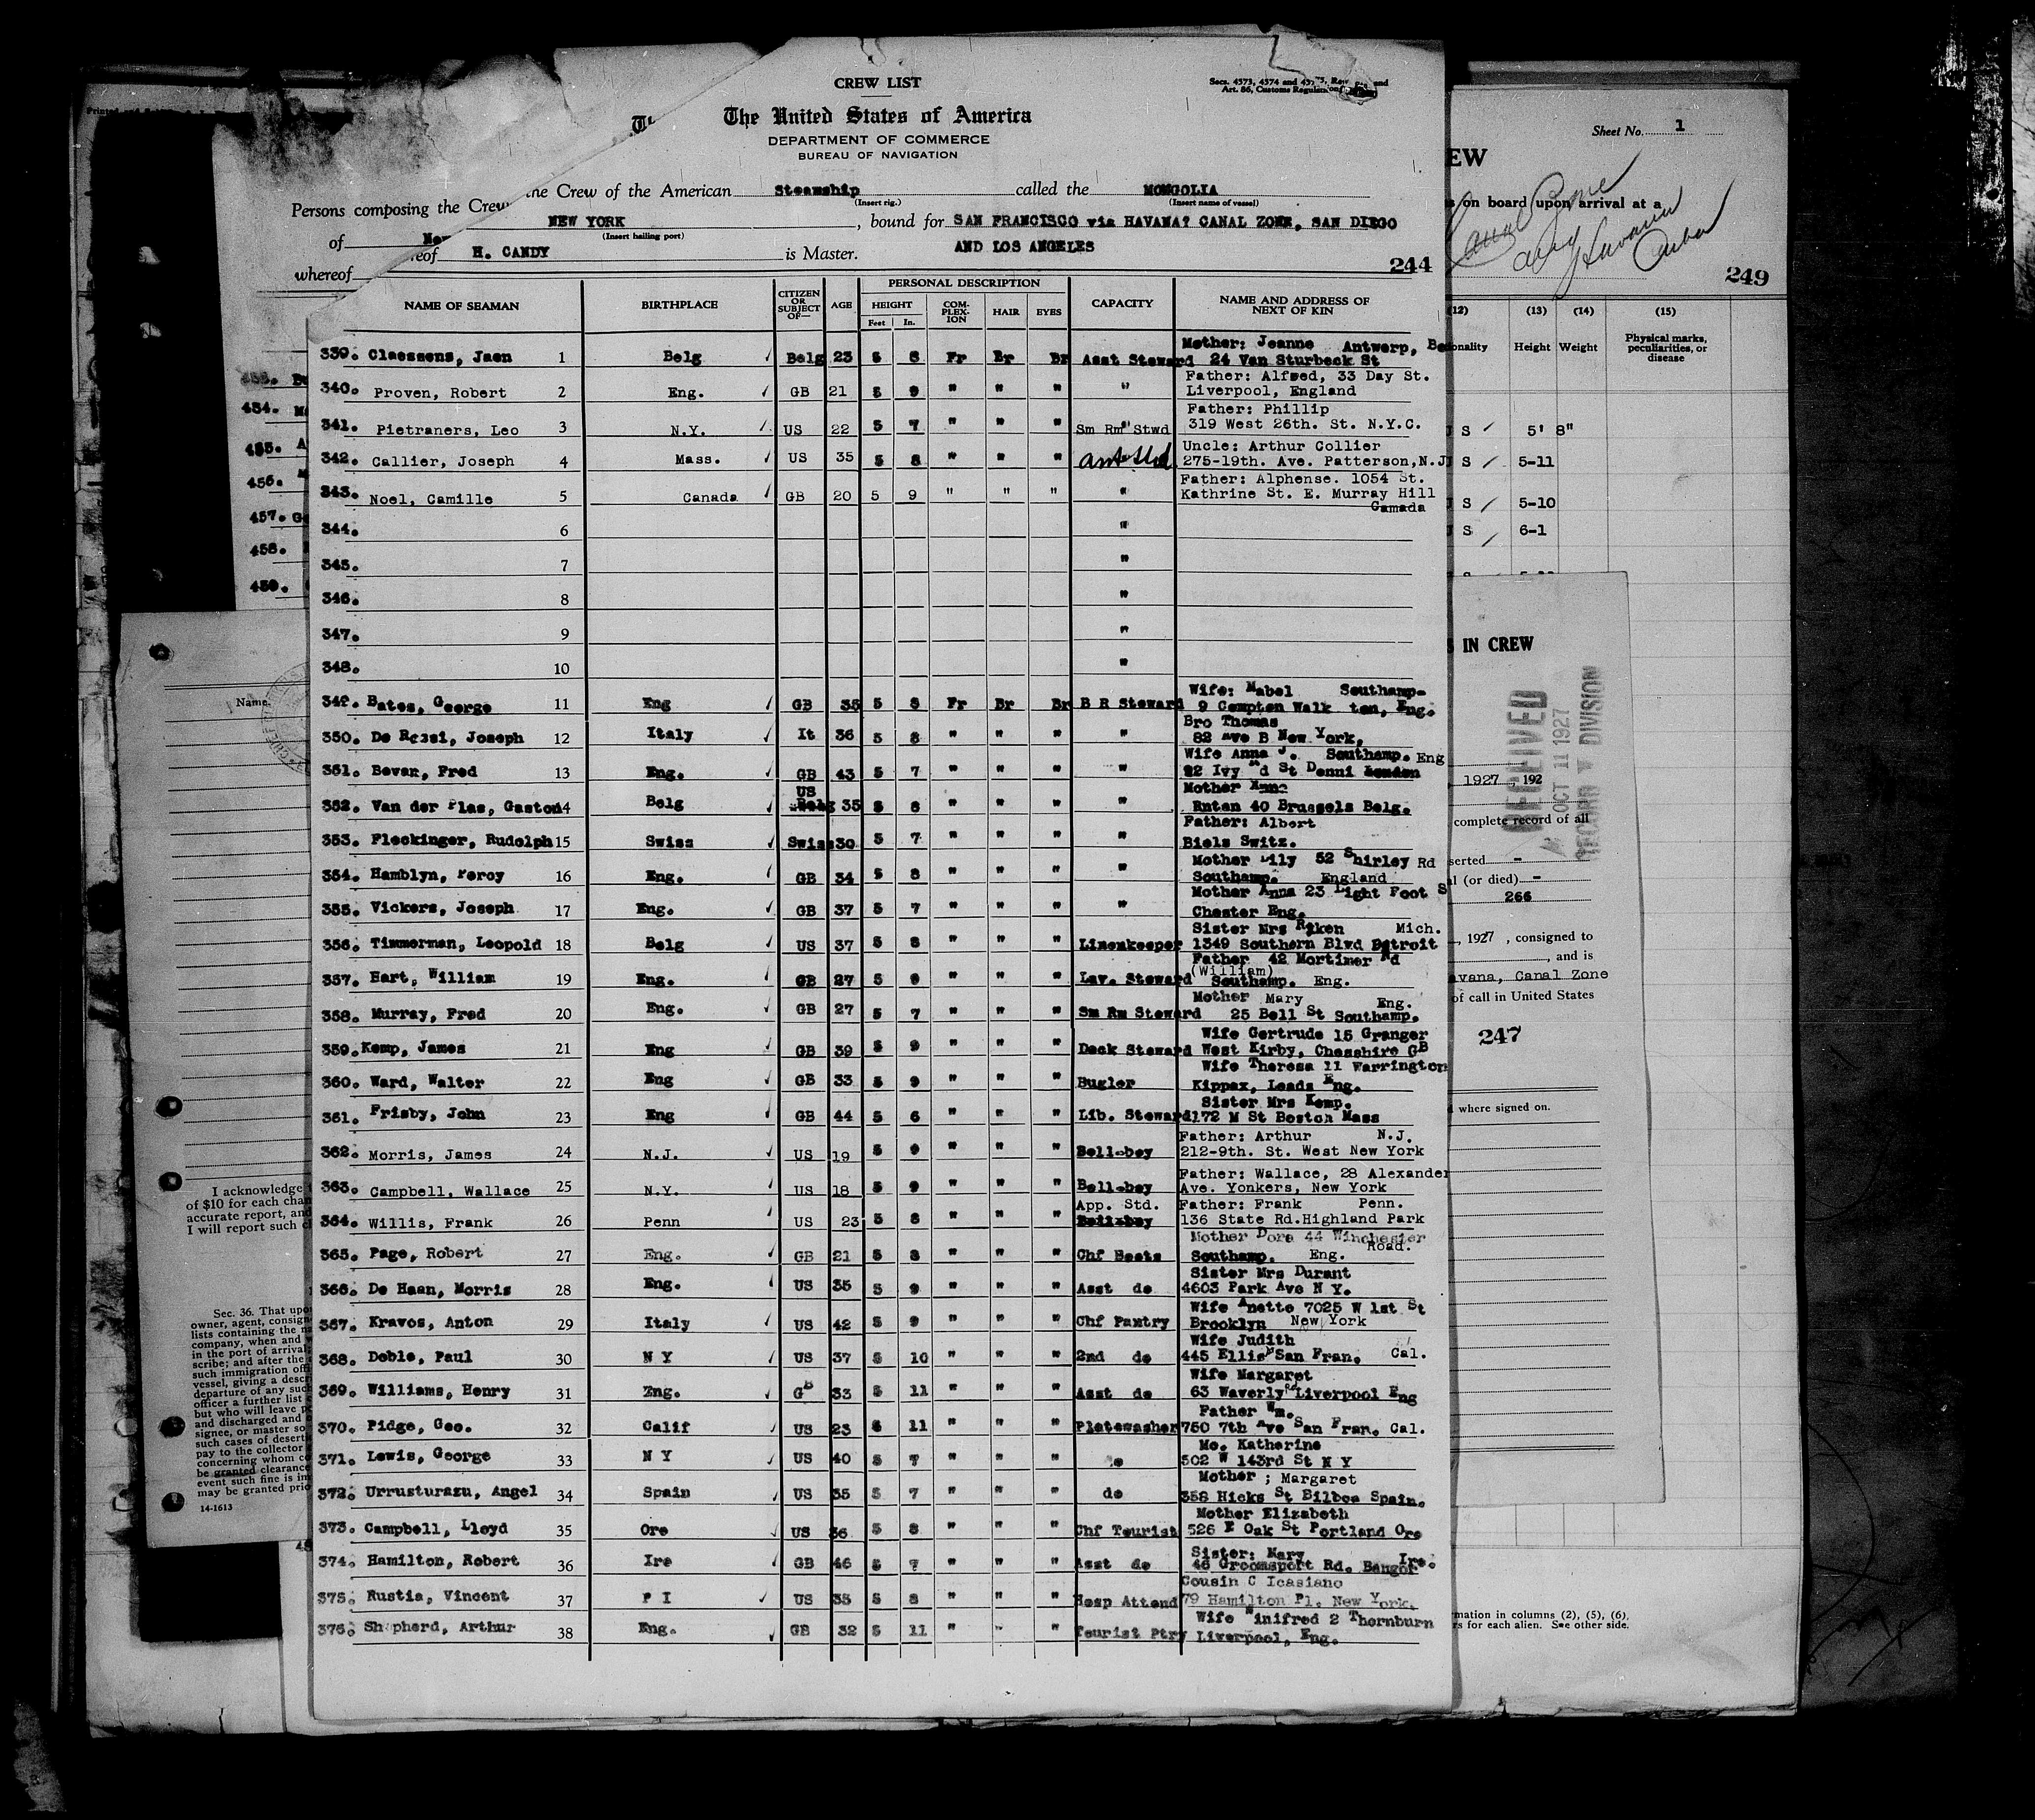 CREW LIST
Secs. 4573, 4574 and
Art. 86, Customs
The United States of America
DEPARTMENT OF COMMERCE
BUREAU OF NAVIGATION
the Crew of the American Steamship called the MONGOLIA
(Insert rig.) (Insert name of vessel)
Persons composing the Crew
NEW YORK, bound for SAN FRANCISCO via HAVANA? CANAL ZONE, SAN DIEGO
of (Insert hailing port)
whereof H. CANDY is Master. AND LOS ANGELES
244
NAME OF SEAMAN BIRTHPLACE CITIZEN OR SUBJECT OF— AGE PERSONAL DESCRIPTION CAPACITY NAME AND ADDRESS OF NEXT OF KIN
HEIGHT COM-PLEX-ION HAIR EYES
Feet In.
339. Claessens, Jaen 1 Belg Belg 23 5 8 Fr Br Br Asst Steward Mother: Jeanne Antwerp,
24 Van Sturbeck St
340. Proven, Robert 2 Eng. GB 21 5 9 " " " " Father: Alfred, 33 Day St.
Liverpool, England
341. Pietraners, Leo 3 N.Y. US 22 5 7 " " " Sm Rm Stwd Father: Phillip
319 West 26th. St. N.Y.C.
342. Callier, Joseph 4 Mass. US 35 5 8 " " " Uncle: Arthur Collier
275-19th. Ave. Patterson, N.J
343. Noel, Camille 5 Canada GB 20 5 9 " " " " Father: Alphense. 1054 St.
Kathrine St. E. Murray Hill
Camada
344. 6 "
345. 7 "
346. 8 "
347. 9 "
348. 10 "
349. Bates, George 11 Eng GB 35 5 8 Fr Br Br B R Steward Wife: Mabel Southamp-
9 Compton Walk ton, Eng.
350. De Rossi, Joseph 12 Italy It 36 5 8 " " " " Bro Thomas
82 Ave B New York,
351. Bevan, Fred 13 Eng. GB 43 5 7 " " " " Wife Anna J. Southamp. Eng
22 Ivy Rd St Denni London
352. Van der Plas, Gaston 14 Belg US Belg 35 5 8 " " " " Mother Anna
Rntan 40 Brussels Belg.
353. Fleckinger, Rudolph 15 Swiss Swiss 30 5 7 " " " " Father: Albert
Biels Switz.
354. Hamblyn, Percy 16 Eng. GB 34 5 8 " " " " Mother Lily 52 Shirley Rd
Southamp. England
355. Vickers, Joseph 17 Eng. GB 37 5 7 " " " " Mother Anna 23 Light Foot S
Chester Eng.
356. Timmerman, Leopold 18 Belg US 37 5 8 " " " Linenkeeper Sister Mrs Riken Mich.
1349 Southern Blvd Detroit
357. Hart, William 19 Eng. GB 27 5 9 " " " Lav. Steward Father 42 Mortimer Rd
(William) Southamp. Eng.
358. Murray, Fred 20 Eng. GB 27 5 7 " " " Sm Rm Steward Mother Mary Eng.
25 Bell St Southamp.
359. Kemp, James 21 Eng GB 39 5 9 " " " Deck Steward Wife Gertrude 15 Granger
West Kirby, Chesshire GB
360. Ward, Walter 22 Eng GB 33 5 9 " " " Bugler Wife Theresa 11 Warrington
Kippax, Leads Eng.
361. Frisby, John 23 Eng GB 44 5 6 " " " Lib. Steward Sister Mrs Kemp.
172 M St Boston Mass
362. Morris, James 24 N.J. US 19 5 9 " " " Bell-boy Father: Arthur N.J.
212-9th. St. West New York
363. Campbell, Wallace 25 N.Y. US 18 5 9 " " " Bell-boy Father: Wallace, 28 Alexander
Ave. Yonkers, New York
364. Willis, Frank 26 Penn US 23 5 8 " " " App. Std. Father: Frank Penn.
136 State Rd. Highland Park
365. Page, Robert 27 Eng. GB 21 5 8 " " " Chf Boots Mother Dora 44 Winchester Road.
Southamp. Eng.
366. De Haan, Morris 28 Eng. US 35 5 9 " " " Asst do Sister Mrs Durant
4603 Park Ave N Y.
367. Kravos, Anton 29 Italy US 42 5 9 " " " Chf Pantry Wife Anette 7025 W 1st St
Brooklyn New York
368. Doble, Paul 30 N Y US 37 5 10 " " " 2nd do Wife Judith
445 Ellis San Fran. Cal.
369. Williams, Henry 31 Eng. GB 33 5 11 " " " Asst do Wife Margaret
63 Waverly Liverpool Eng
370. Pidge, Geo. 32 Calif US 23 5 11 " " " Platewasher Father Wm.
750 7th Ave San Fran. Cal.
371. Lewis, George 33 N Y US 40 5 7 " " " do Mo. Katherine
502 W 143rd St N Y
372. Urrusturazu, Angel 34 Spain US 35 5 7 " " " do Mother ; Margaret
358 Hicks St Bilboa Spain.
373. Campbell, Lloyd 35 Ore US 36 5 8 " " " Chf Tourist Mother Elizabeth
526 E Oak St Portland Ore
374. Hamilton, Robert 36 Ire GB 46 5 7 " " " Asst do Sister: Mary Ire.
46 Groomsport Rd. Bangor
375. Rustia, Vincent 37 P I US 35 5 8 " " " Hosp Attend Cousin C Icasiano
79 Hamilton Pl. New York.
376. Shepherd, Arthur 38 Eng. GB 32 5 11 " " " Tourist Ptry Wife Winifred 2 Thornburn
Liverpool, Eng.
Sheet No. 1
EW
on board upon arrival at a
Canal Zone
Havana
Cuba
249
(12) (13) (14) (15)
onality Height Weight Physical marks, peculiarities, or disease
S 5' 8"
S 5-11
S 5-10
S 6-1
IN CREW
RECEIVED
OCT 11 1927
RECORD DIVISION
1927 192
complete record of all
serted -
l (or died) -
266
, 1927 , consigned to
, and is
avana, Canal Zone
of call in United States
247
where signed on.
rmation in columns (2), (5), (6),
rs for each alien. See other side.
454.
455.
456.
457.
458.
459.
Name
I acknowledge
of $10 for each
accurate report, and
I will report such
Sec. 36. That upo
owner, agent, consign
lists containing the
company, when and
in the port of arrival
scribe; and after the
such immigration
vessel, giving a
departure of any such
officer a further list
but who will leave
and discharged and
signee, or master
such cases of
pay to the collector
concerning whom
be granted clearance
event such fine is
may be granted
14-1613